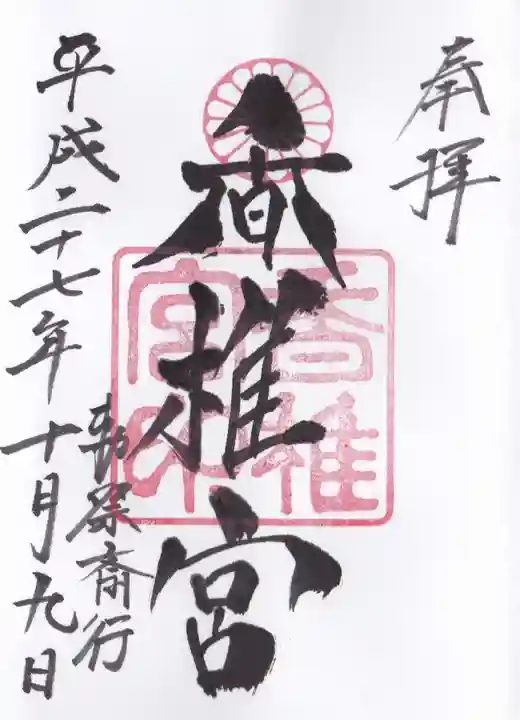 奉拝
香椎宮
香椎
宮印
勅祭斎行
平成二十七年十月九日